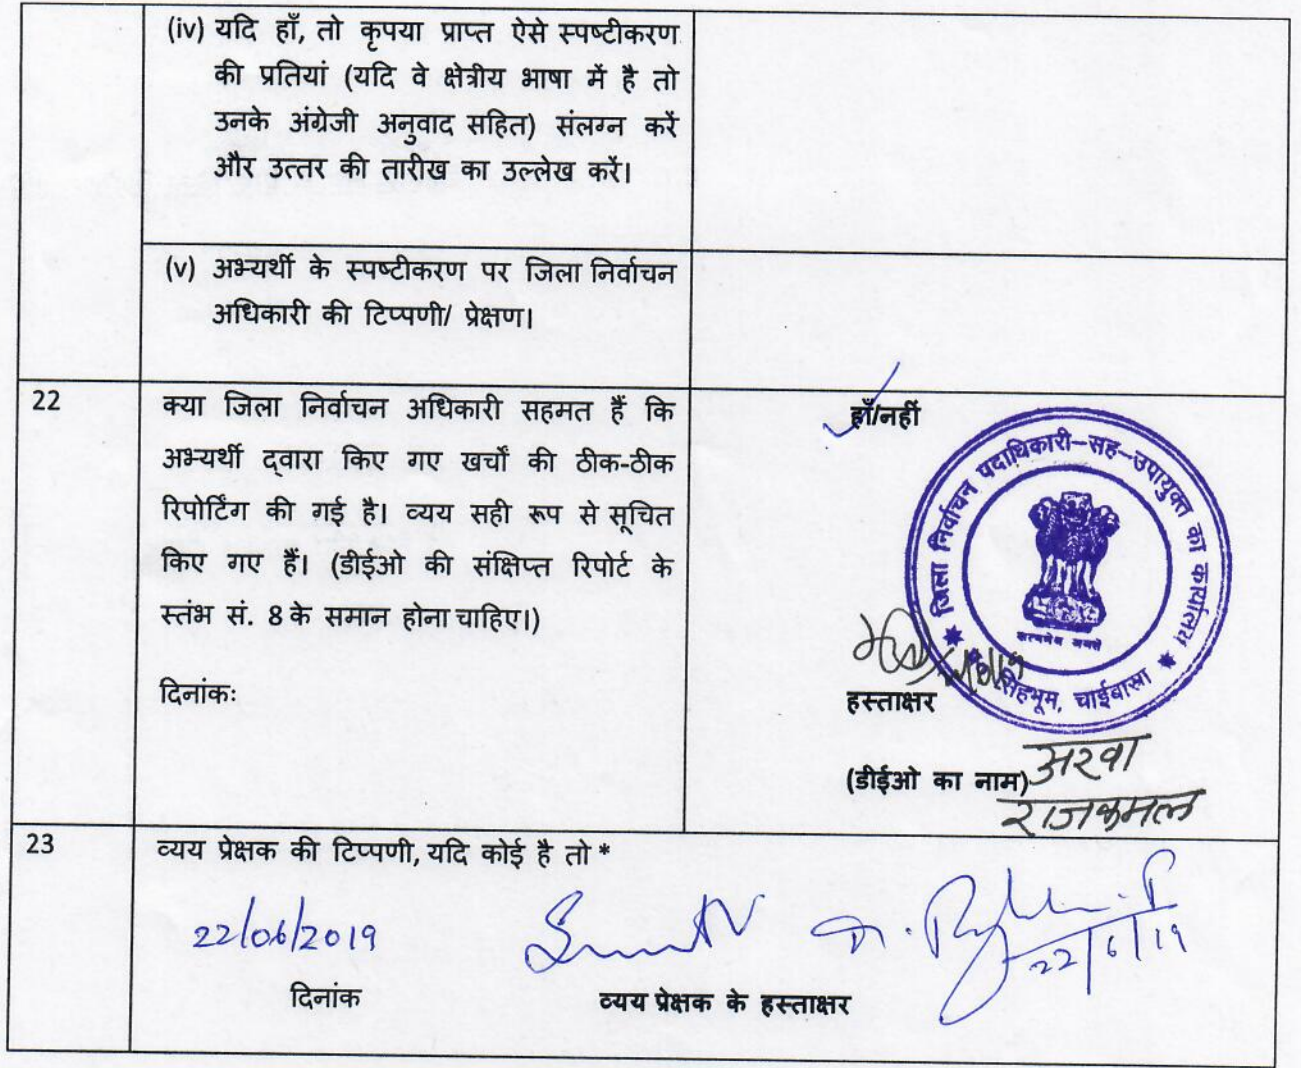 (iv) यदि हाँ, तो कृपया प्राप्त ऐसे स्पष्टीकरण
की प्रतियां (यदि वे क्षेत्रीय भाषा में है तो
उनके अंग्रेजी अनुवाद सहित) संलग्न करें
और उत्तर की तारीख का उल्लेख करें।
(v) अभ्यर्थी के स्पष्टीकरण पर जिला निर्वाचन
अधिकारी की टिप्पणी/ प्रेक्षण।
22
क्या जिला निर्वाचन अधिकारी सहमत हैं कि
अभ्यर्थी द्वारा किए गए खर्चों की ठीक-ठीक
रिपोर्टिंग की गई है। व्यय सही रूप से सूचित
किए गए हैं। (डीईओ की संक्षिप्त रिपोर्ट के
स्तंभ सं. 8 के समान होना चाहिए।)
दिनांकः
हाँ/नहीं
जिला निर्वाचन पदाधिकारी-सह-उपायुक्त का कार्यालय
सत्यमेव जयते
सिंहभूम, चाईबासा
हस्ताक्षर
(डीईओ का नाम) अरवा
राजकमल
23
व्यय प्रेक्षक की टिप्पणी, यदि कोई है तो *
22/06/2019
22/6/19
दिनांक
व्यय प्रेक्षक के हस्ताक्षर